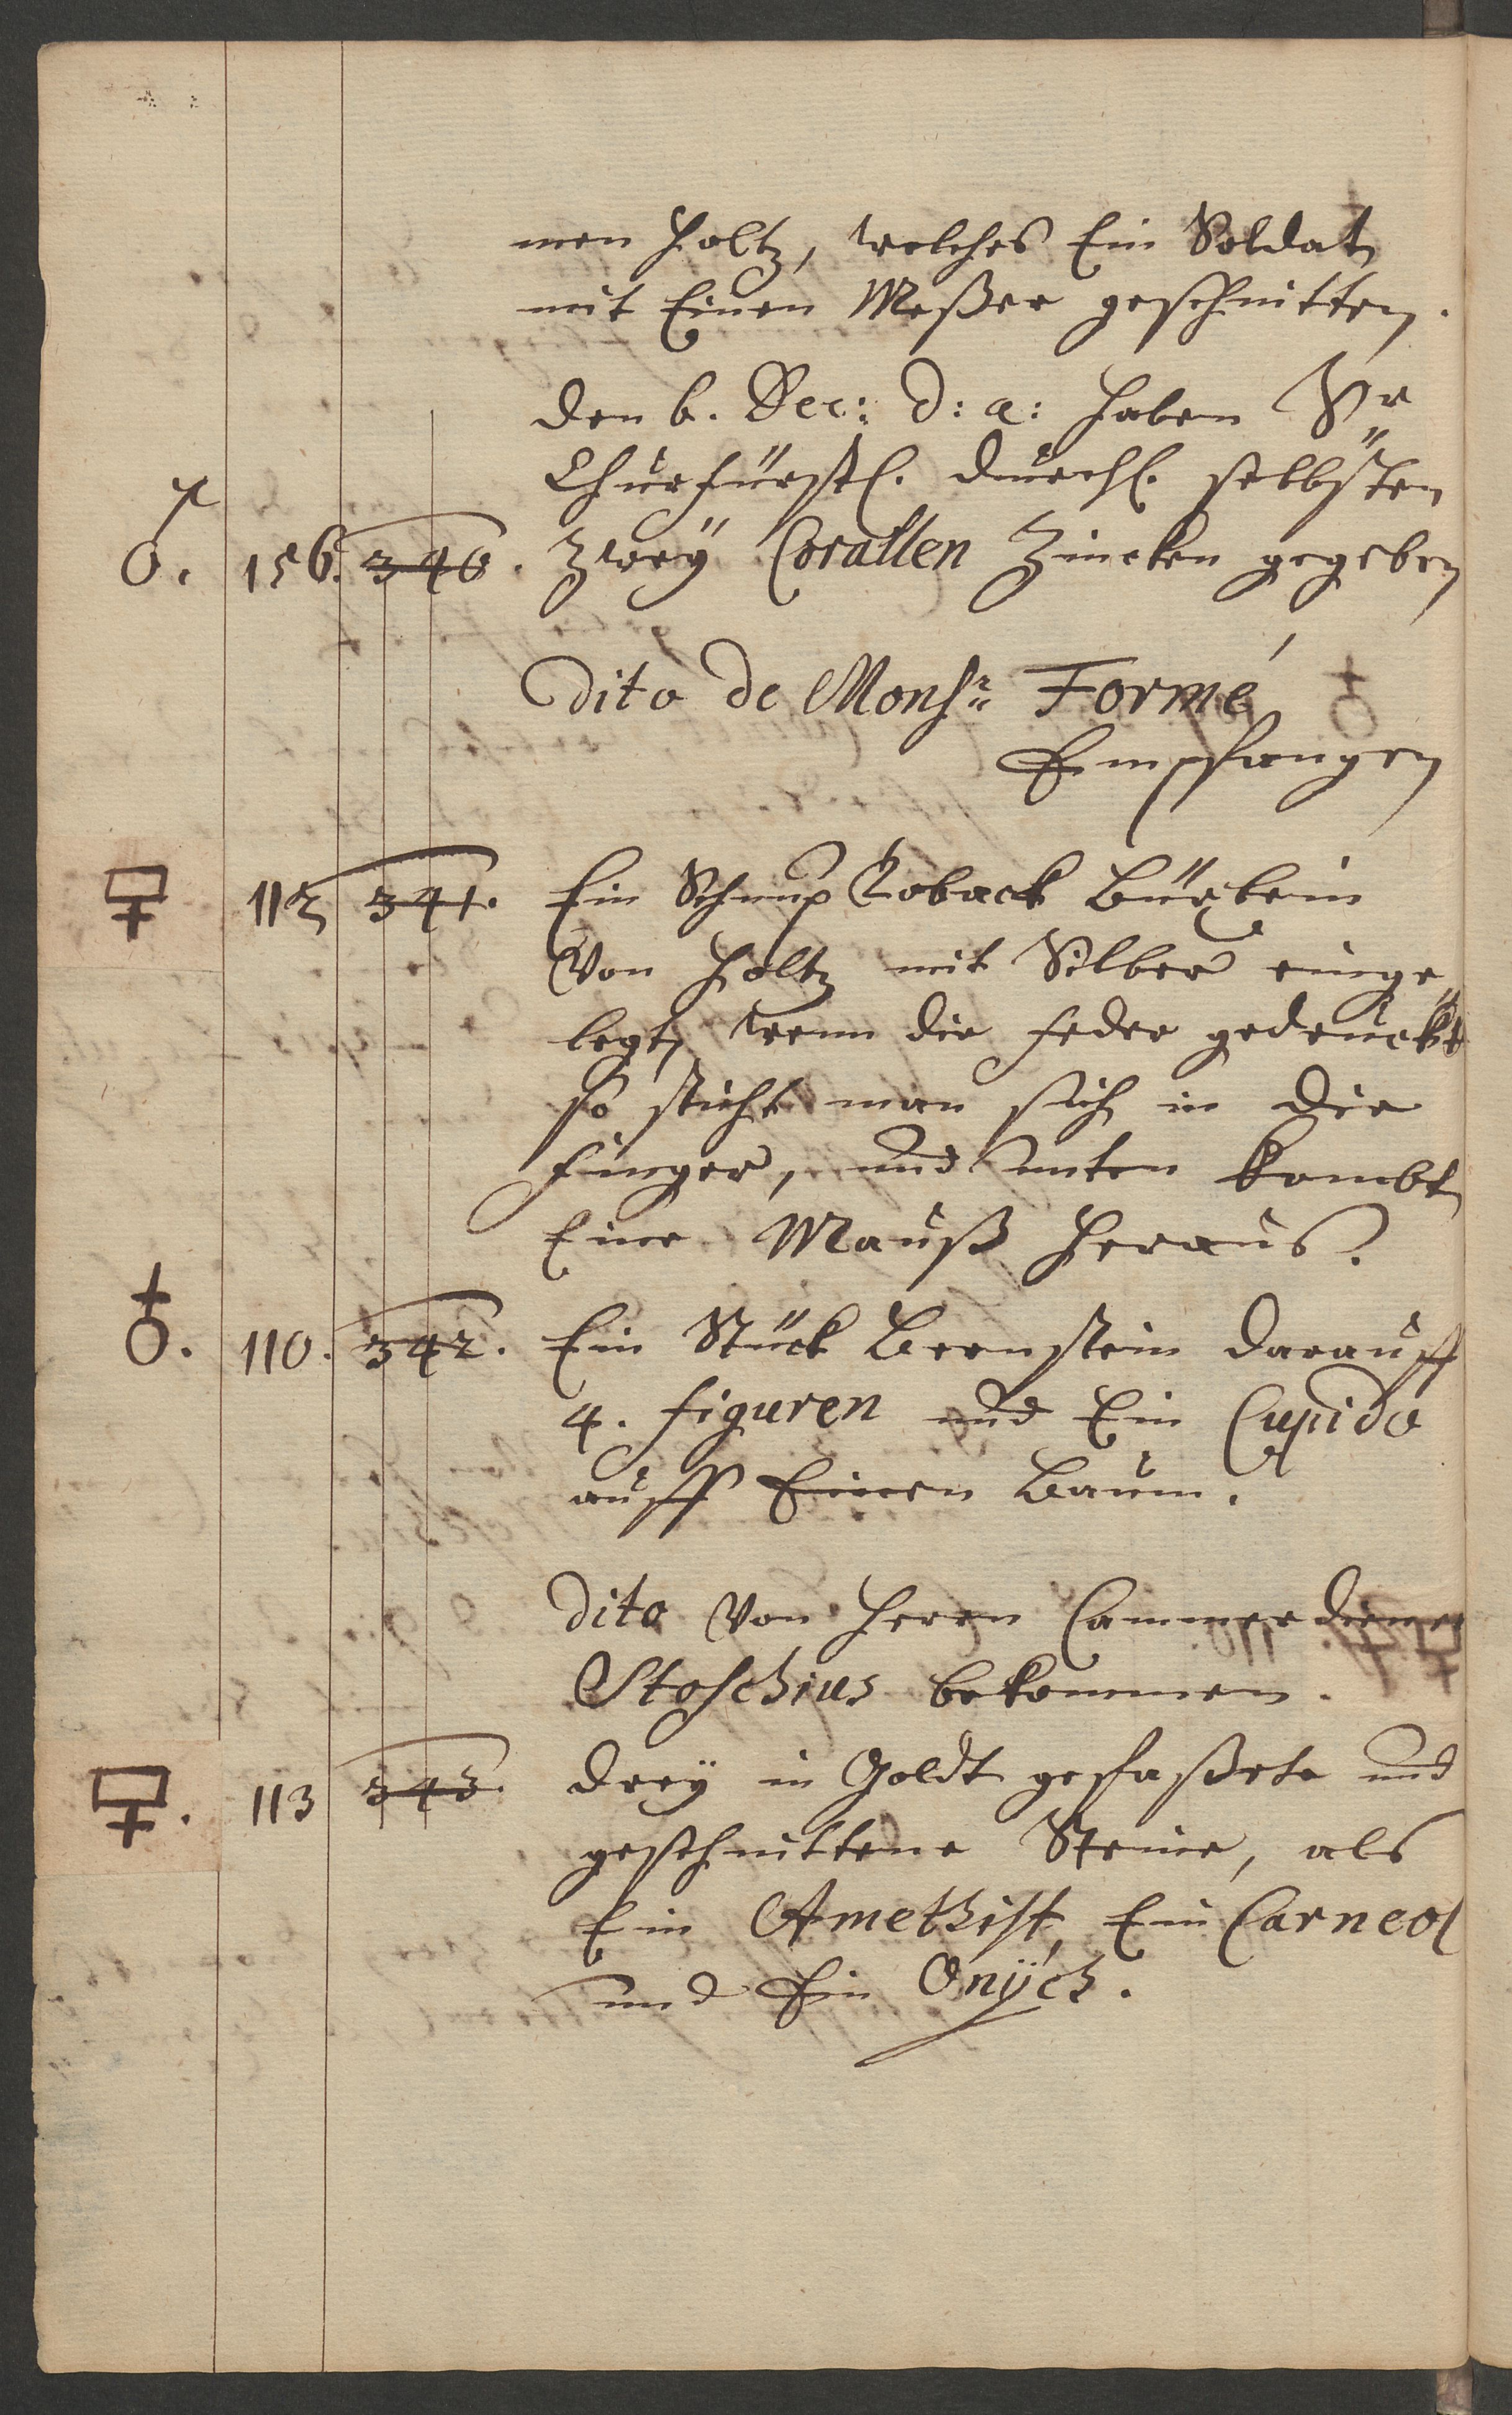 men holtz, welches Ein Soldat
mit Einen Meßer geschnitten.
den 6. Dec: d: a: haben Sr
Churfürstl. durchl. selbsten
156. 340. Zweÿ Corallen Zincken gegeben
Dito de Monsr Formé
Empfangen
112 341. Ein Schnup Toback Büxlein
Von holtz mit Silber einge
legt, wenn die feder gedrückt
so sticht man sich in die
finger, und unten kombt
Eine Mauß heraus.
110. 342. Ein Stück Bernstein darauff
4. figuren und Ein Cupido
auff Einen Baum.
Dito Von Herrn Cammerdiener
Stoschius bekommen.
113 343. dreÿ in Goldt gefaßete und
geschnittene Steine, als
Ein Amethist, Ein Carneol
und Ein Onÿch.